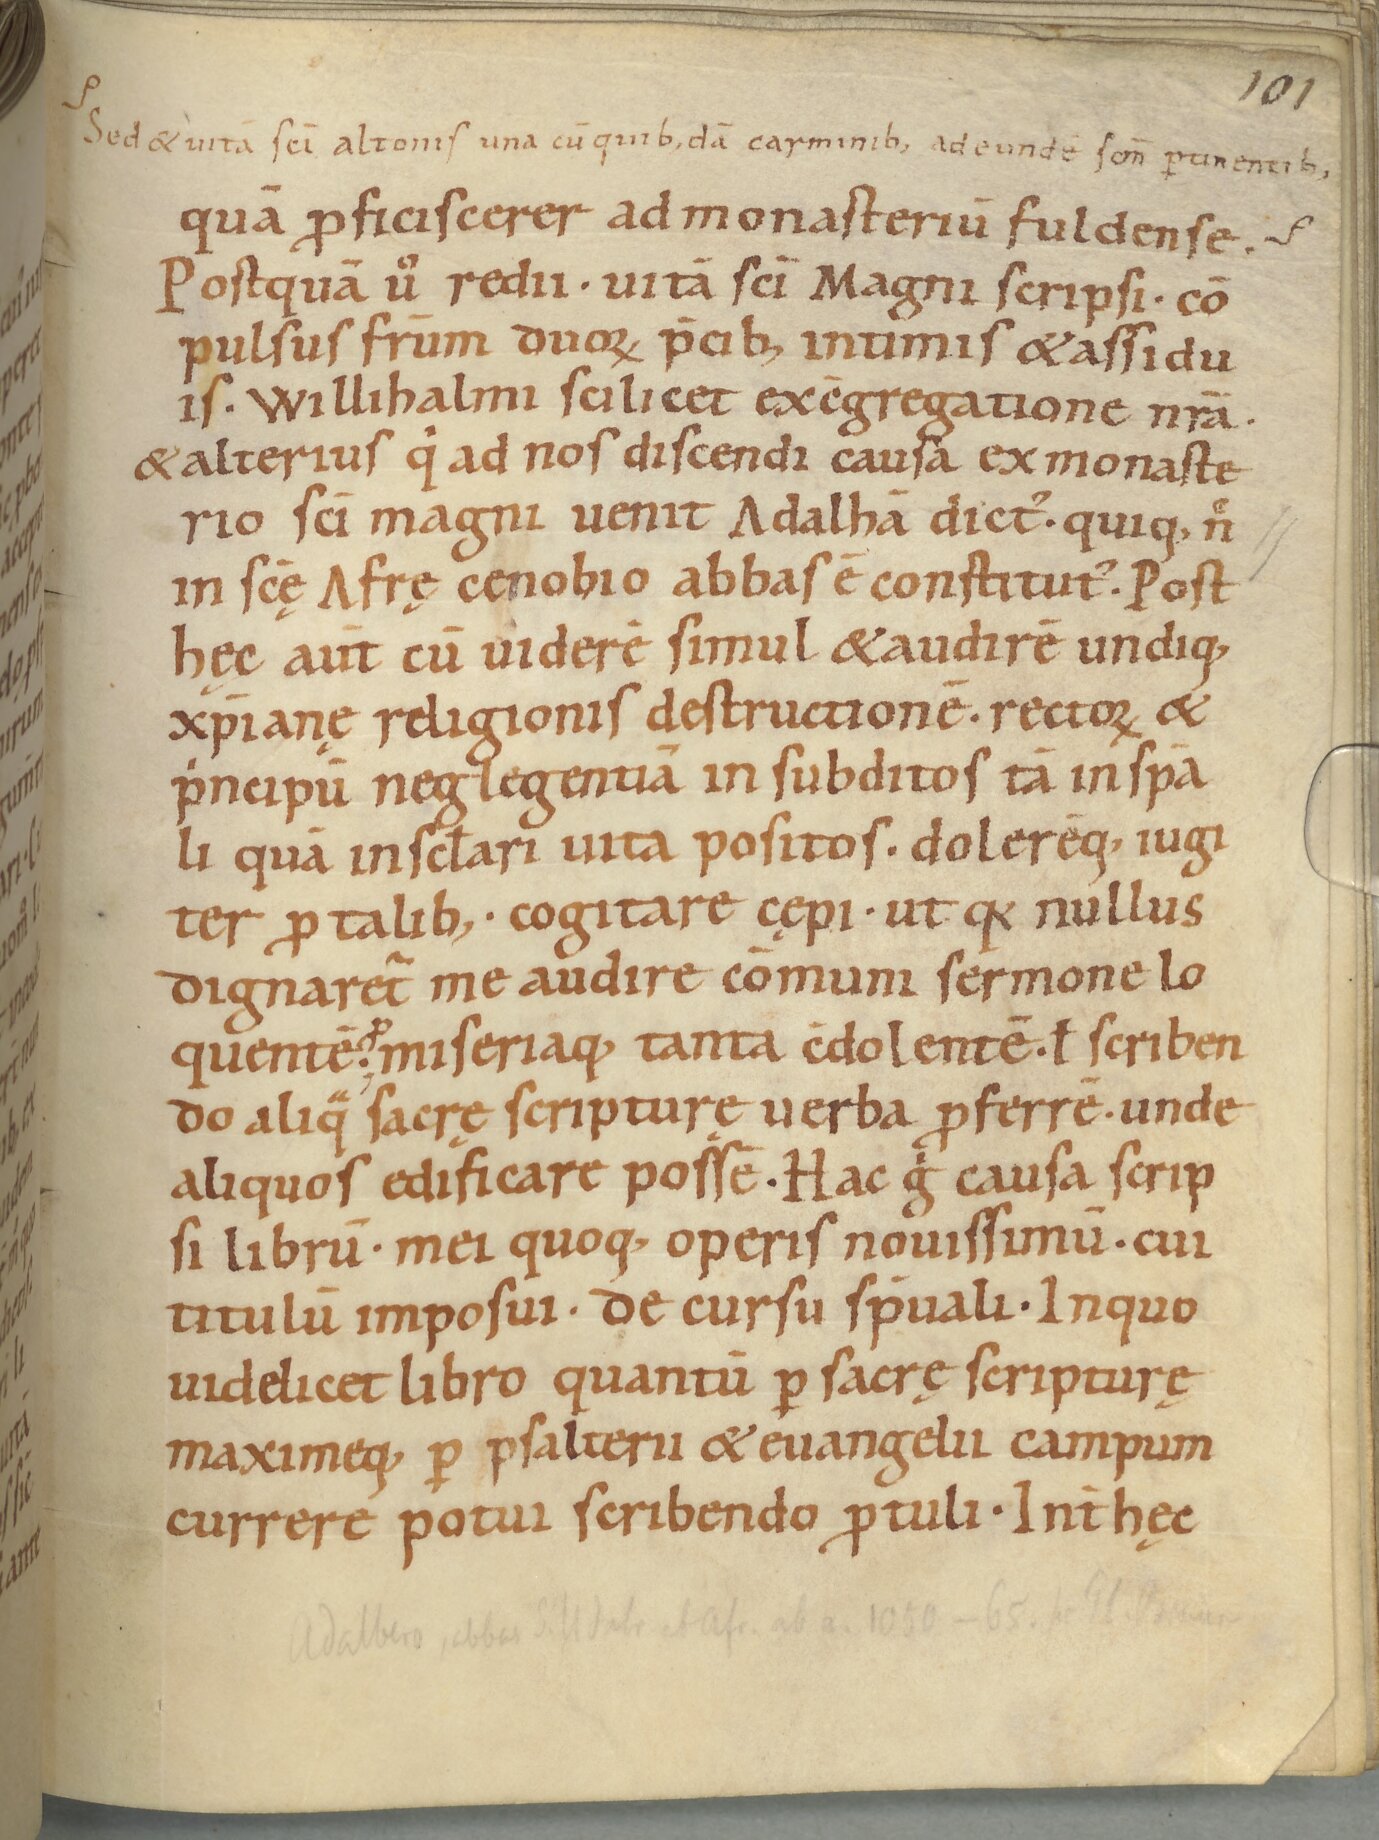 101
Sed & uitā sc̄i altonis una cū quib;dā carminib; ad eundē sc̄m ꝑtinentib;
quā ꝓficiscerer ad monasteriū fuldense.
Postquā ů redii · uitā sc̄i Magni scripsi · cō
pulsus frūm duoꝝ p̄cib; intimis & assidu
is. Willihalmi scilicet ex c̄gregatione nr̄a.
& alterius qͥ ad nos discendi causa ex monaste
rio sc̄i magni uenit Adalhā dict᾽. quiq; n̊
in sc̄ę Afrę cenobio abbas ē constitut᾽. Post
hęc aūt cū uiderē simul & audirē undiq;
xp̄ianę religionis destructionē. rectoꝝ &
pͥncipū neglegentiā in subditos tā in sp̄a
li quā in sc̄lari uita positos. dolerēq; iugi
ter ꝓ talib; · cogitare cępi · ut qꝫ nullus
dignaret᷑ me audire cōmuni sermone lo
quentē. miseriaq; tanta c̄dolentē. ł scriben
do aliqᷓ sacrę scripturę uerba ꝓferrē. unde
aliquos edificare possē. Hac gͥ causa scrip
si librū · mei quoq; operis nouissimū · cui
titulū imposui · de cursu sp̄uali · In quo
uidelicet libro quantū ꝑ sacrę scripturę
maximeq; ꝑ psalterii & euangelii campum
currere potui scribendo ꝓtuli · Int̄ hęc
Adalbero, abbas
1050 – 65.